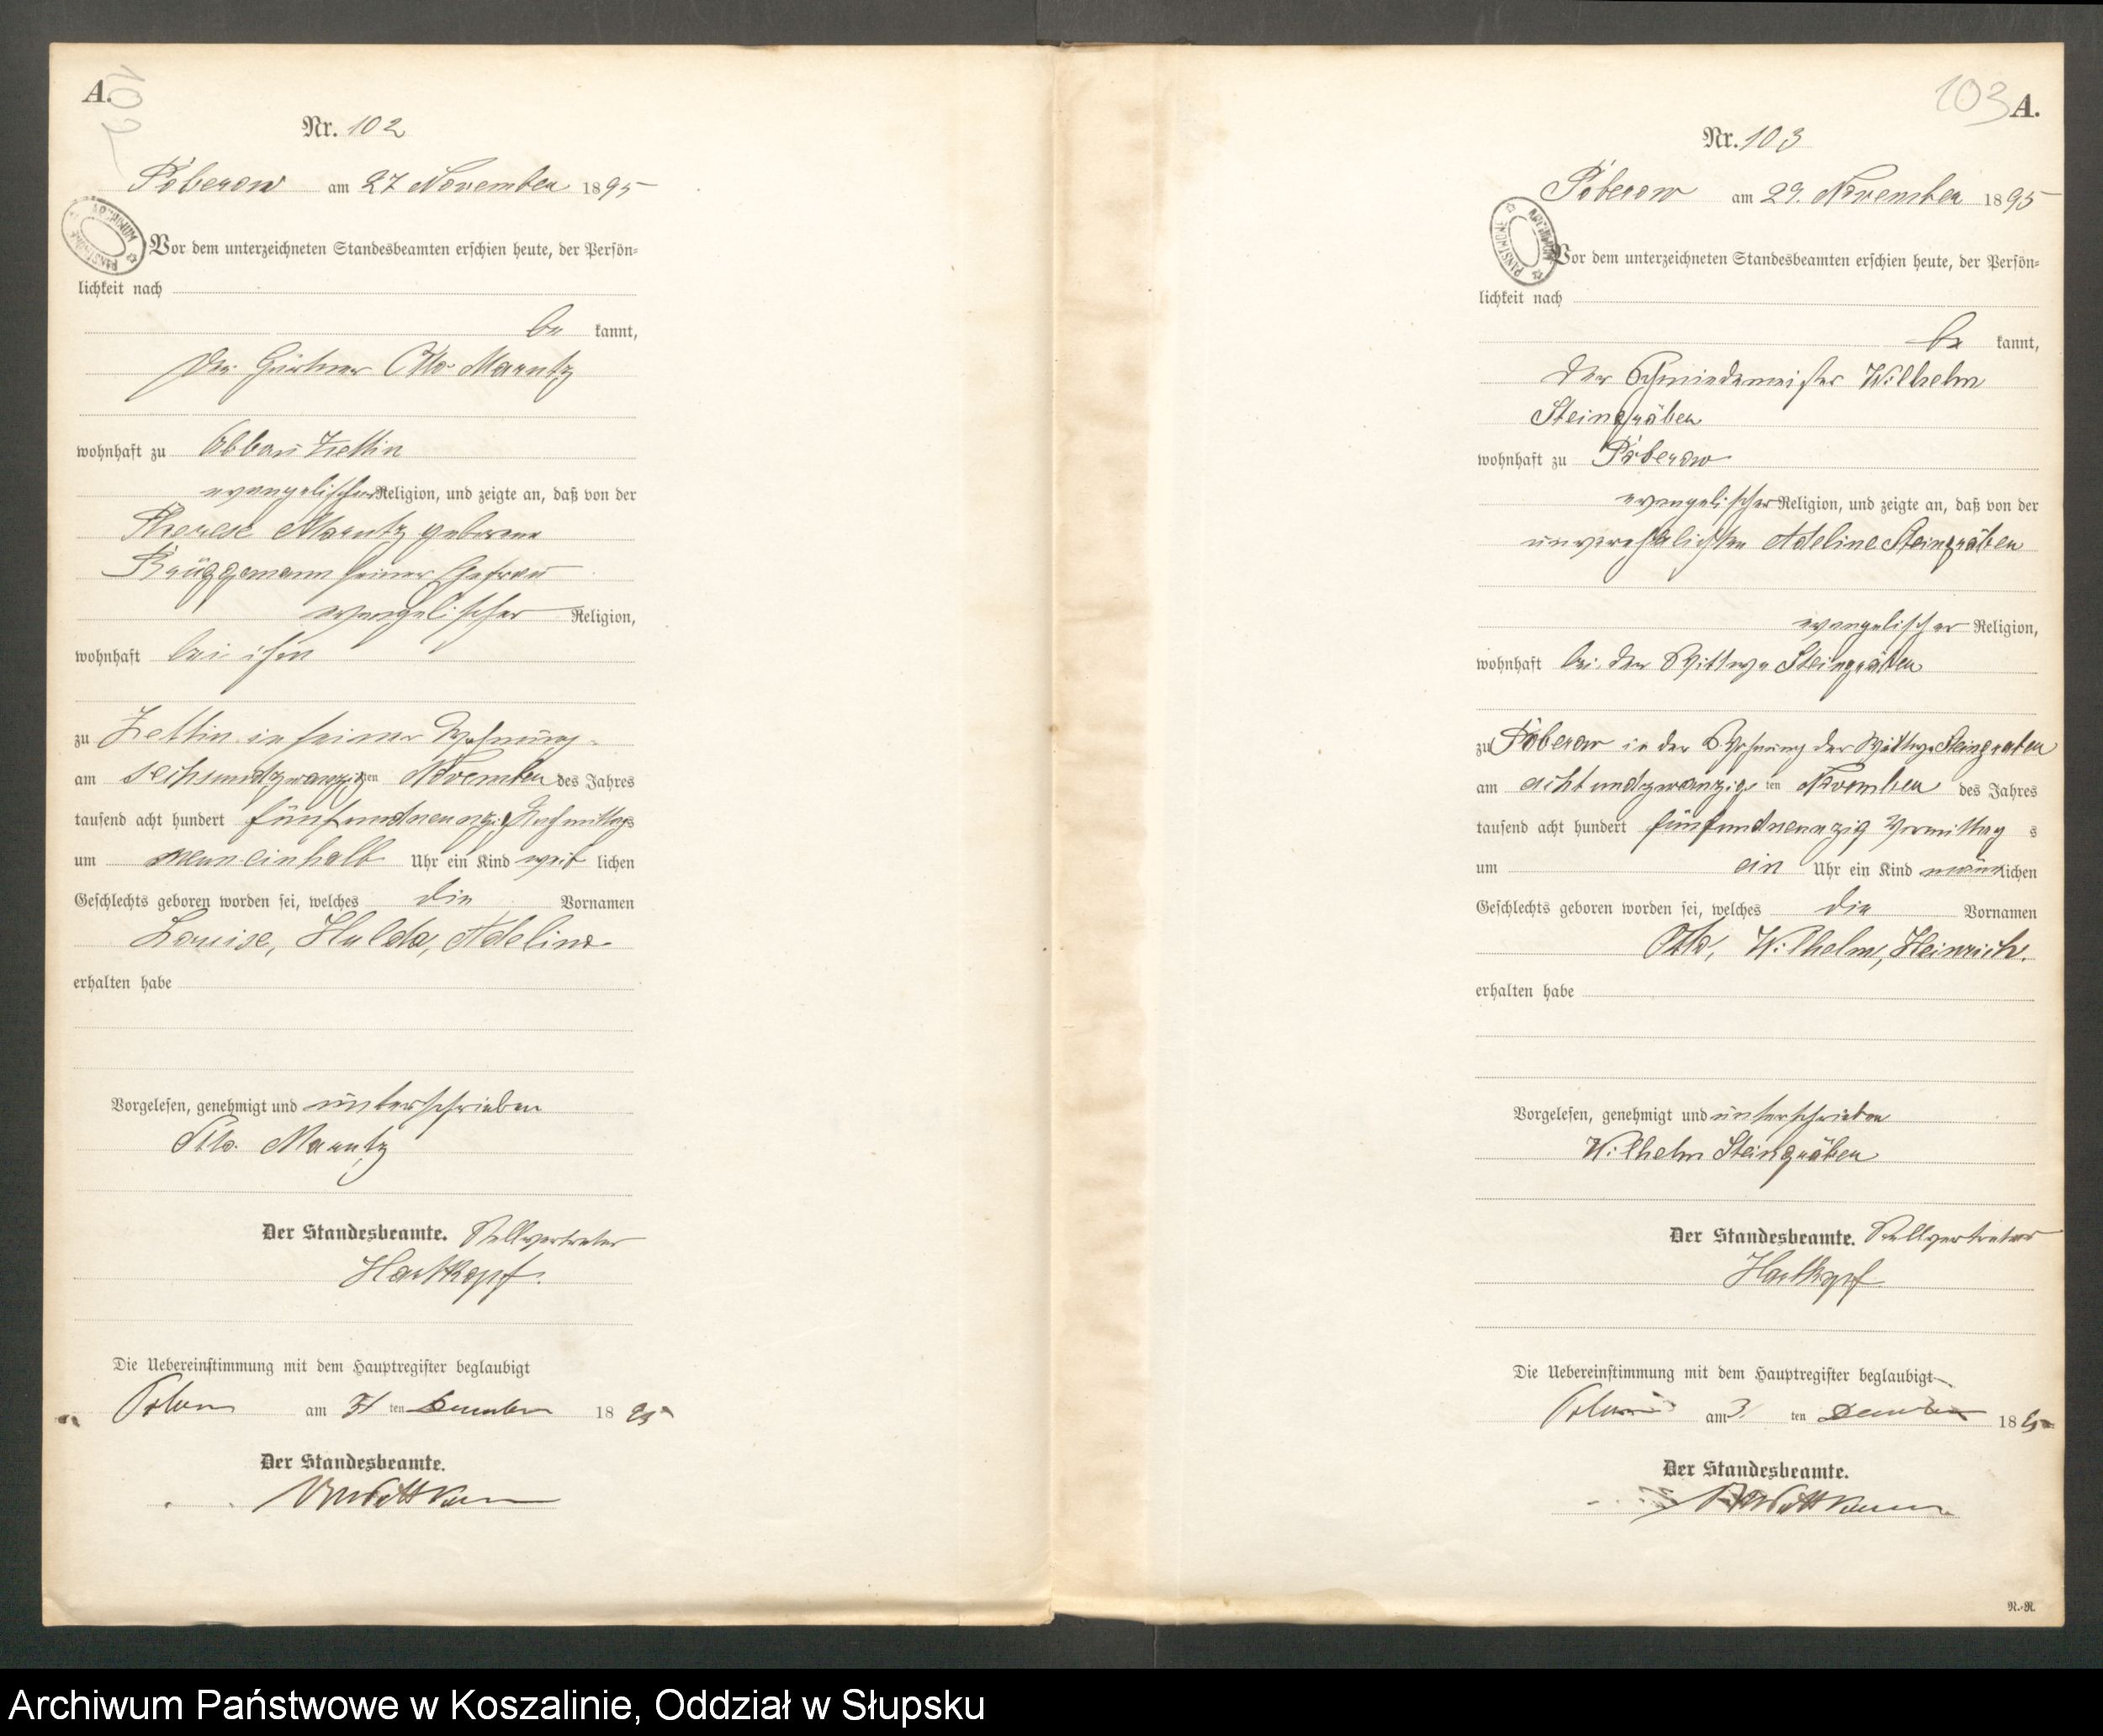 A.
102
Nr. 102
Pöberow am 27 November 1895
Vor dem unterzeichneten Standesbeamten erschien heute, der Persön-
lichkeit nach
be kannt,
der Gärtner Otto Marutz
wohnhaft zu Abbau Zettin
evangelischer Religion, und zeigte an, daß von der
Therese Marutz geborene
Brüggemann seiner Ehefrau
evangelischer Religion,
wohnhaft bei ihm
zu Zettin in seiner Wohnung
am sechsundzwanzigten November des Jahres
tausend acht hundert fünfundneunzig Nachmittags
um neun einhalb Uhr ein Kind weib lichen
Geschlechts geboren worden sei, welches die Vornamen
Louise, Hulda, Adeline
erhalten habe
Vorgelesen, genehmigt und unterschrieben
Otto Marutz
Der Standesbeamte. Stellvertreter
Hartkopf.
Die Uebereinstimmung mit dem Hauptregister beglaubigt
am 31 ten Dezember 1895
Der Standesbeamte.
103 A.
Nr. 103
Pöberow am 29. November 1895
Vor dem unterzeichneten Standesbeamten erschien heute, der Persön-
lichkeit nach
be kannt,
der Schmiedemeister Wilhelm
Steingräber
wohnhaft zu Pöberow
evangelischer Religion, und zeigte an, daß von der
unverehelichten Adeline Steingräber
evangelischer Religion,
wohnhaft bei der Wittwe Steingräber
zu Pöberow in der Wohnung der Wittwe Steingräber
am achtundzwanzig ten November des Jahres
tausend acht hundert fünfundneunzig Vormittag s
um ein Uhr ein Kind männlichen
Geschlechts geboren worden sei, welches die Vornamen
Otto, Wilhelm, Heinrich.
erhalten habe
Vorgelesen, genehmigt und unterschrieben
Wilhelm Steingräber
Der Standesbeamte. Stellvertreter
Hartkopf
Die Uebereinstimmung mit dem Hauptregister beglaubigt
am 31 ten Dezember 1895
Der Standesbeamte.
N.-R.
Archiwum Państwowe w Koszalinie, Oddział w Słupsku